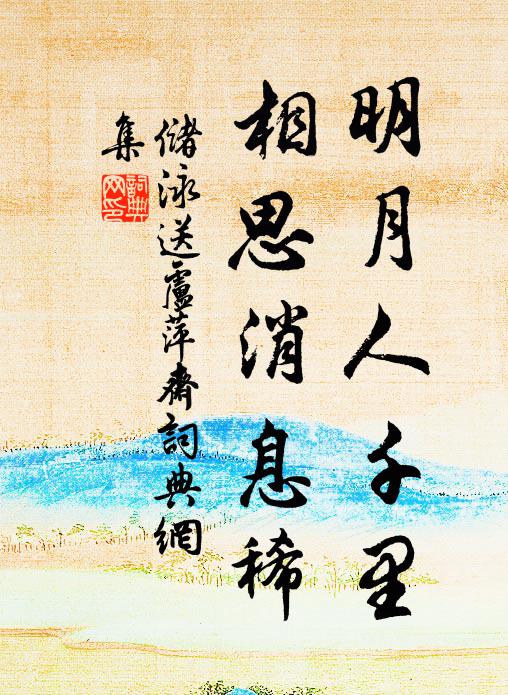 明月人千里
相思消息稀
儲泳送盧萍齋詞典網
集
詞典
网印